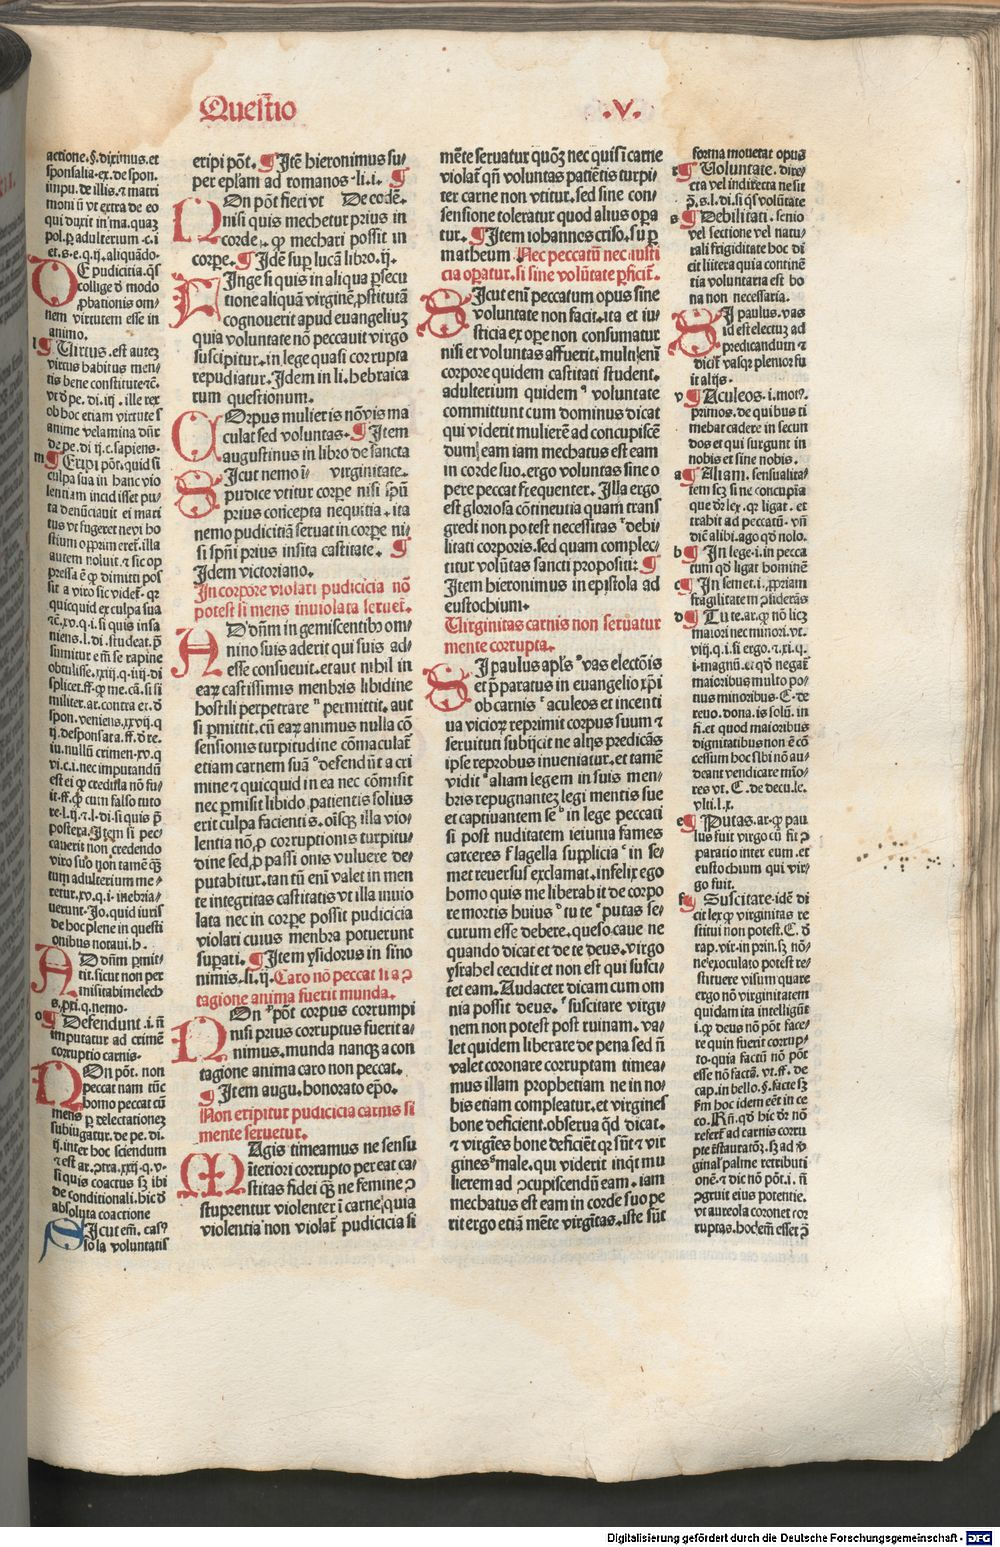 Questio .V.
actione.§.diximus.et
sponsalia.ex.de spon.
impu.de illis.⁊ matri
moni ū vt extra de eo
qui duxit in ma.quaȝ
pol.ꝑ adulterium.c.i
et.s.e.q.ij.aliquādo.
DE pudicitia.q̄s
collige ð modo
ꝓbationis om/
nem virtutem esse in
animo.
l ¶ Uirtus.est auteȝ
virtus habitus men/
tis bene constitute ⁊c̄.
vt ð pe.di.ij.ille rex
ob hoc etiam virtutes
anime velamina dn̄r
de pe.di ij.c.sapiens.
m ¶ Eripi pōt.quid si
culpa sua in hanc vio
lentiam incidisset pu/
ta denūciauit ei mari
tus vt fugeret nevi ho
stium opprimeret̄.illa
autem noluit.⁊ sic op
pressa ē ꝙ dimitti pos
sit a viro sic videt̄.qr
quicquid ex culpa sua
⁊c̄.xv.q.i.si quis insa
niens.l.di.studeat.ꝑ
sumitur em̄ se rapine
obtulisse.xxiij.q.iiij.di
splicet.ff.ꝙ me.cā.si si
militer.ar.contra et.ð
spon.veniens.xxvij.q
ij.desponsata.ff.ð re.
iu.nullū crimen.xv.q
vi.c.i.nec imputandū
est ei ꝙ credita nō fu/
it.ff.ꝙ cum falso tuto
re.l.ij.⁊.l.di.si quis ꝑ
postera.Item si pec/
cauerit non credendo
viro suo non tamē q̄ꝫ
tum adulterium me/
retur.xv.q.i.inebria/
uerunt.Jo.quid iuris
de hoc plene in questi
onibus notaui.h.
AD dn̄m ꝑmit/
tit.sicut non per
misit abimelech
s.xxi.q.nemo.
o ¶ Defendunt.i.n̄
imputatur ad crimē
corruptio carnis.
NOn pōt. non
peccat nam tūc
homo peccat cū
mens ꝑ delectationeȝ
subiugatur.de pe.di.
ij.inter hoc sciendum
⁊ est ar.ꝯtra.xxij.q.v.
si quis coactus sȝ ibi
de conditionali.hic ð
absoluta coactione
SIcut em̄. casꝰ
sola voluntatis
eripi pōt. ¶ Itē hieronimus su/
per epl̄am ad romanos.li.i. ¶
NOn pōt fieri vt De codē.
nisi quis mechetur prius in
corde. ꝙ mechari possit in
corꝑe. ¶ Idē suꝑ lucā libro.ij.
FInge si quis in aliqua ꝑsecu
tione aliquā virginē ꝓstitutā
cognouerit apud euangeliuȝ
quia voluntate nō peccauit virgo
suscipitur.in lege quasi corrupta
repudiatur.Idem in li.hebraica
rum questionum.
COrpus mulieris nō vis ma
culat sed voluntas. ¶ Item
augustinus in libro de sancta
SIcut nemo virginitate.
pudice vtitur corꝑe nisi spū
prius concepta nequitia.ita
nemo pudicitiā seruat in corꝑe ni/
si spn̄i prius insita castitate. ¶
Idem victoriano.
In corpore violari pudicicia nō
potest si mens inuiolata seruet̄.
AD dn̄m ingemiscentibꝰ om/
nino suis aderit qui suis ad/
esse consueuit.et aut nihil in
earȝ castissimis menbris libidine
hostili perpetrare ⁿ permittit.aut
si ꝑmittit.cū earȝ animus nulla cō
sensionis turpitudine cōmaculat̄
etiam carnem suā ᵒ defendūt a cri
mine ⁊ quicquid in ea nec cōmisit
nec ꝑmisit libido patientis solius
erit culpa facientis.oīsqȝ illa vio/
lentia nō ꝓ corruptionis turpitu/
dine sed ꝓ passionis vulnere de/
putabitur.tantū enī valet in men
te integritas castitatis vt illa inuio
lata nec in corꝑe possit pudicicia
violari cuius menbra potuerunt
suꝑari. ¶ Item ysidorus in sino
nimis.li.ij. Caro nō peccat si a ꝯ
tagione anima fuerit munda.
NOn ᵖ pōt corpus corrumpi
nisi prius corruptus fuerit a/
nimus.munda nanqȝ a con
tagione anima caro non peccat.
¶ Item augu.honorato ep̄o.
Non eripitur pudicicia carnis si
mente seruetur.
MAgis timeamus ne sensu
interiori corrupto pereat ca/
stitas fidei q̄ȝ ne femine ꝯ
stuprentur violenter ī carne/quia
violentia non violat̄ pudicicia si
mēte seruatur quōȝ nec quis ī carne
violat̄ qn̄ voluntas patiētis turpi/
ter carne non vtitur.sed sine con/
sensione toleratur quod alius oꝑa
tur. ¶ Item iohannes criso.suꝑ
matheum Nec peccatū nec iusti
cia oꝑatur.si sine volūtate ꝑficit̄.
SIcut enī peccatum opus sine
voluntate non facit.ita et iu/
sticia ex oꝑe non consumatur
nisi et voluntas affuerit.multi enī
corpore quidem castitati student.
adulterium quidem voluntate
committunt cum dominus dicat
qui viderit mulierē ad concupiscē
dum eam iam mechatus est eam
in corde suo.ergo voluntas sine o
pere peccat frequenter. Illa ergo
est gloriosa cōtinentia quam trans
gredi non potest necessitas ˢ debi/
litati corporis.sed quam complec/
titur volūtas sancti propositi: ¶
Item hieronimus in epistola ad
eustochium.
Uirginitas carnis non seruatur
mente corrupta.
SI paulus apl̄s vas electōis
et p̄paratus in euangelio xp̄i
ob carnis aculeos et incenti
ua viciorȝ reprimit corpus suum ⁊
seruituti subijcit ne alijs predicās
ipse reprobus inueniatur.et tamē
vidit ᵃ aliam legem in suis men/
bris repugnantez legi mentis sue
et captiuantem se ᵇ in lege peccati
si post nuditatem ieiunia fames
carceres flagella supplicia ᶜ in se/
met reuersus exclamat.infelix ego
homo quis me liberabit de corpo
re mortis huius ᵈ tu te ᵉ putas se/
curum esse debere.queso caue ne
quando dicat et de te deus.virgo
ysrahel cecidit et non est qui susci/
tet eam.Audacter dicam cum om
nia possit deus.ᶠ suscitare virgi/
nem non potest post ruinam. va/
let quidem liberare de pena sed n̄
valet coronare corruptam timea/
mus illam prophetiam ne in no/
bis etiam compleatur.et virgines
bone deficient.obserua qd̄ dicat.
⁊ virgīes bone deficiēt qr sūt ⁊ vir
gines male.qui viderit inq̄t mu
lierem ad ꝯcupiscendū eam.iam
mechatus est eam in corde suo pe
rit ergo etiā mēte virgītas.iste sūt
forma mouetat opus
r ¶ Uoluntate.dire/
cta vel indirecta ne sit
ꝓ.s.l.di.si q̄s volūtate
s ¶ Debilitati.senio
vel sectione vel natu/
rali frigiditate hoc di
cit littera quia continē
tia voluntaria est bo
na non necessaria.
SI paulus.vas
id est electuȝ ad
predicandum ⁊
dicit̄ vasqȝ plenior fu
it alijs.
v ¶ Aculeos.i.motꝰ.
primos.de quibus ti
mebat cadere in secun
dos et qui surgunt in
nobis et sine nobis.
a ¶ Aliam.sensualita/
tem scȝ siue concupīa
que dr̄ lex.qr ligat.et
trahit ad peccatū.vn̄
dic̄ alibi.ago qd̄ nolo.
b ¶ In lege.i.in pecca
tum qd̄ ligat hominē
c ¶ In semet.i.ꝓpriam
fragilitatem ꝯsiderās
d ¶ Tu te.ar.ꝙ nō licȝ
maiori nec minori.vt.
viij.q.i.si ergo.⁊.xi.q.
i.magnū.et qd̄ negat̄
maioribus multo po/
nus minoribus.C.de
reuo.dona.is solū.in
fi.et quod maioribus
dignitatibus non ē cō
cessum hoc sibi nō au/
deant vendicare mīo/
res vt.C.de decu.le.
vlti.l.x.
e ¶ Putas.ar.ꝙ pau
lus fuit virgo cū fit ꝯ
paratio inter eum.et
eustochium qui vir/
go fuit.
f ¶ Suscitare.idē di
cit lex ꝙ virginitas re
stitui non potest.C.ð
rap.vir.in prin.sȝ nō/
ne exoculato potest re/
stituere visum quare
ergo nō virginitatem
quidam ita intelligūt
i.ꝙ deus nō pōt face/
re quin fuerit corrup/
to.quia factū nō pōt
esse nō factā.vt.ff.de
cap.in bello.§.facte sȝ
ꝑm hoc idem eēt in ce
co.Rn̄.qd̄ hic dr̄ nō
refert̄ ad carnis corru
pte restauratōȝ.sȝ ad ð
ginal palme retributi
onē.⁊ dic nō pōt.i.n̄
ꝯgruit eius potentie.
vt aureola coronet cor
ruptas.hoc em̄ esset ꝯ
Digitalisierung gefördert durch die Deutsche Forschungsgemeinschaft - DFG